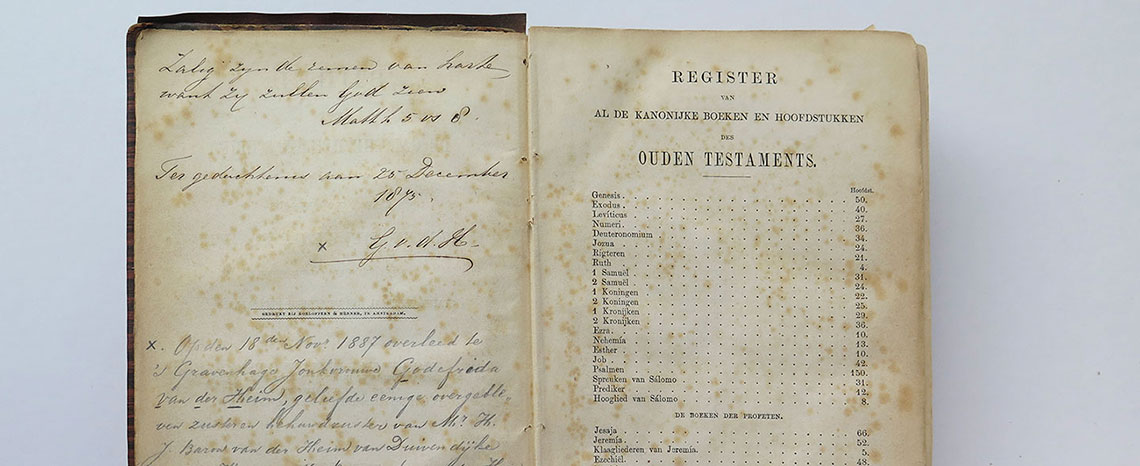 Zalig zyn de reinen van harte
want zy zullen God zien
Matth 5 vs 8.
Ter gedachtenis aan 25 December
1875.
x G. v. d. H-
GEDRUKT BIJ KOELOFFZEN & HÜBNER, IN AMSTERDAM.
x. Op den 18den Novr 1887 overleed te
's Gravenhage Jonkvrouwe Godefrida
van der Heim, geliefde eenige overgeble-
ven zuster en behuwdzuster van Mr H.
J. Baron van der Heim van Duivendijke
REGISTER
VAN
AL DE KANONIJKE BOEKEN EN HOOFDSTUKKEN
DES
OUDEN TESTAMENTS.
Hoofdst.
Genesis. 50.
Exodus. 40.
Leviticus 27.
Numeri. 36.
Deuteronomium 34.
Jozua 24.
Rigteren 21.
Ruth 4.
1 Samuël 31.
2 Samuël 24.
1 Koningen 22.
2 Koningen 25.
1 Kronijken 29.
2 Kronijken 36.
Ezra. 10.
Nehemía 13.
Esther 10.
Job 42.
Psalmen 150.
Spreuken van Sálomo 31.
Prediker 12.
Hooglied van Sálomo 8.
DE BOEKEN DER PROFETEN.
Jesaja 66.
Jeremía. 52.
Klaagliederen van Jeremia. 5.
Ezechiël. 48.